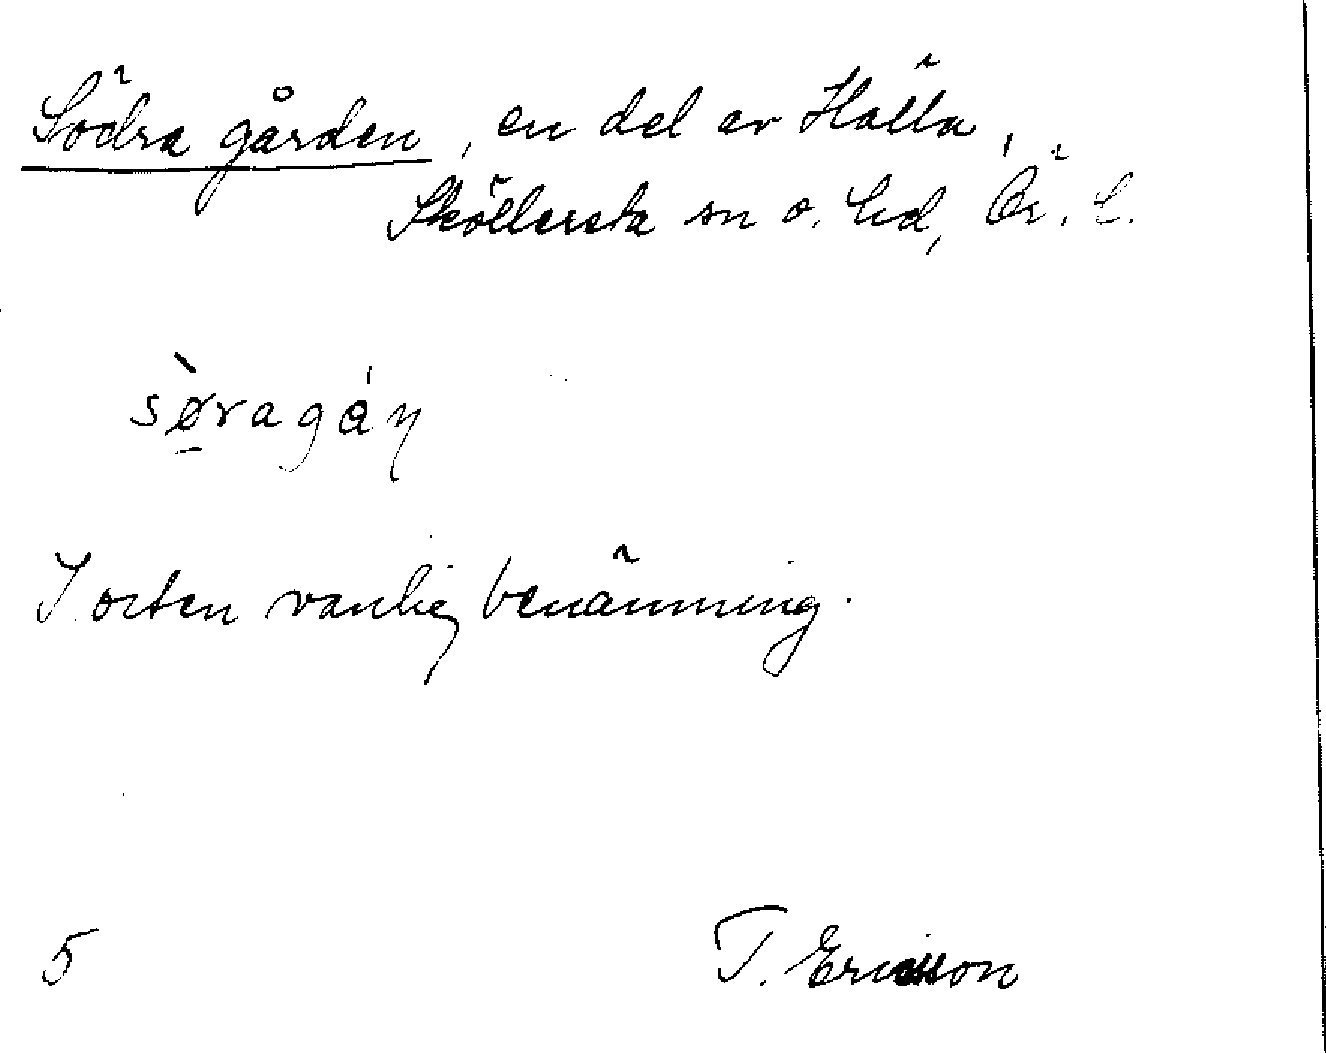 Södra gården, en del av Hälla,
Sköllersta sn o. hd, Ör. l.
sø̲̀ragáɳ
I orten vanlig benämning.
5 T. Ericsson